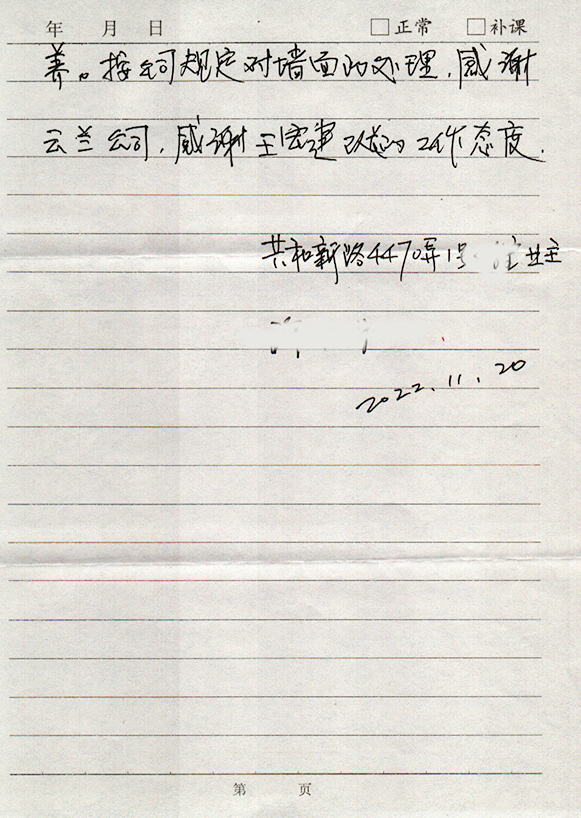 年 月 日 □正常 □补课
养。按公司规定对墙面的处理,感谢
云兰公司,感谢王宏建 的工作态度.
共和新路4470弄1号 业主
2022.11.20
第 页